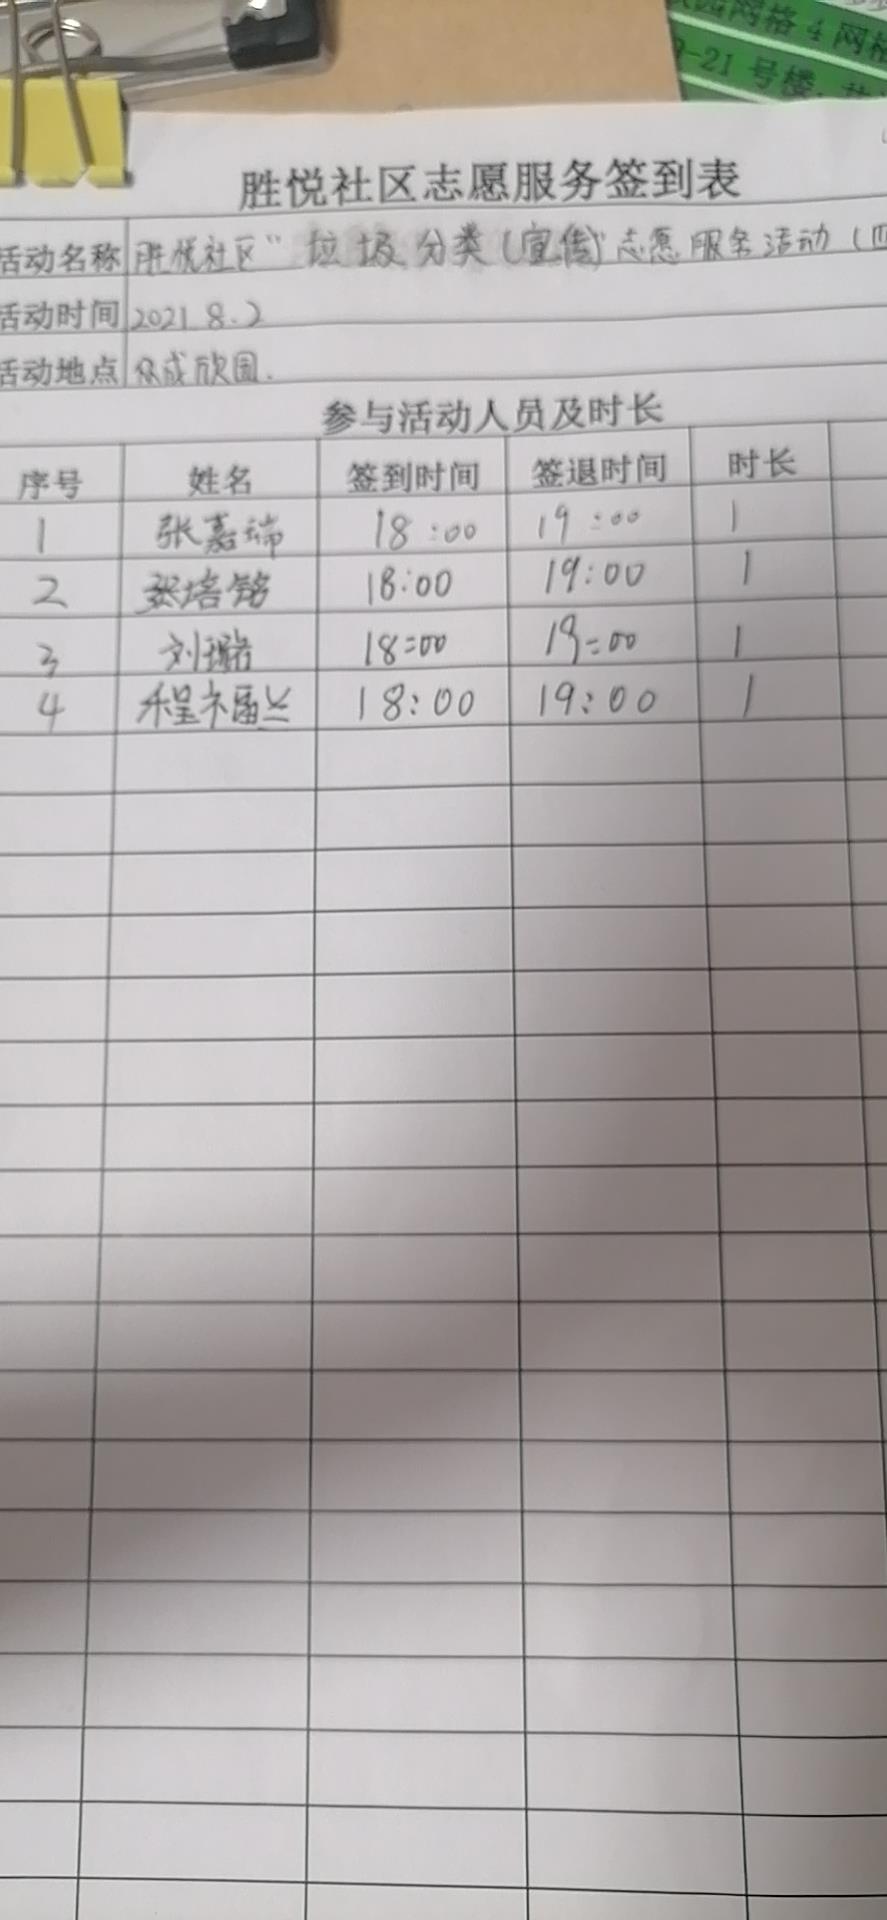 网格4网格
9-21号楼
胜悦社区志愿服务签到表
活动名称 胜悦社区“垃圾分类(宣传)”志愿服务活动(四
活动时间 2021.8.2
活动地点 众成欣园.
参与活动人员及时长
序号 姓名 签到时间 签退时间 时长
1 张嘉瑞 18:00 19:00 1
2 张培铭 18:00 19:00 1
3 刘璐 18:00 19:00 1
4 程福兰 18:00 19:00 1